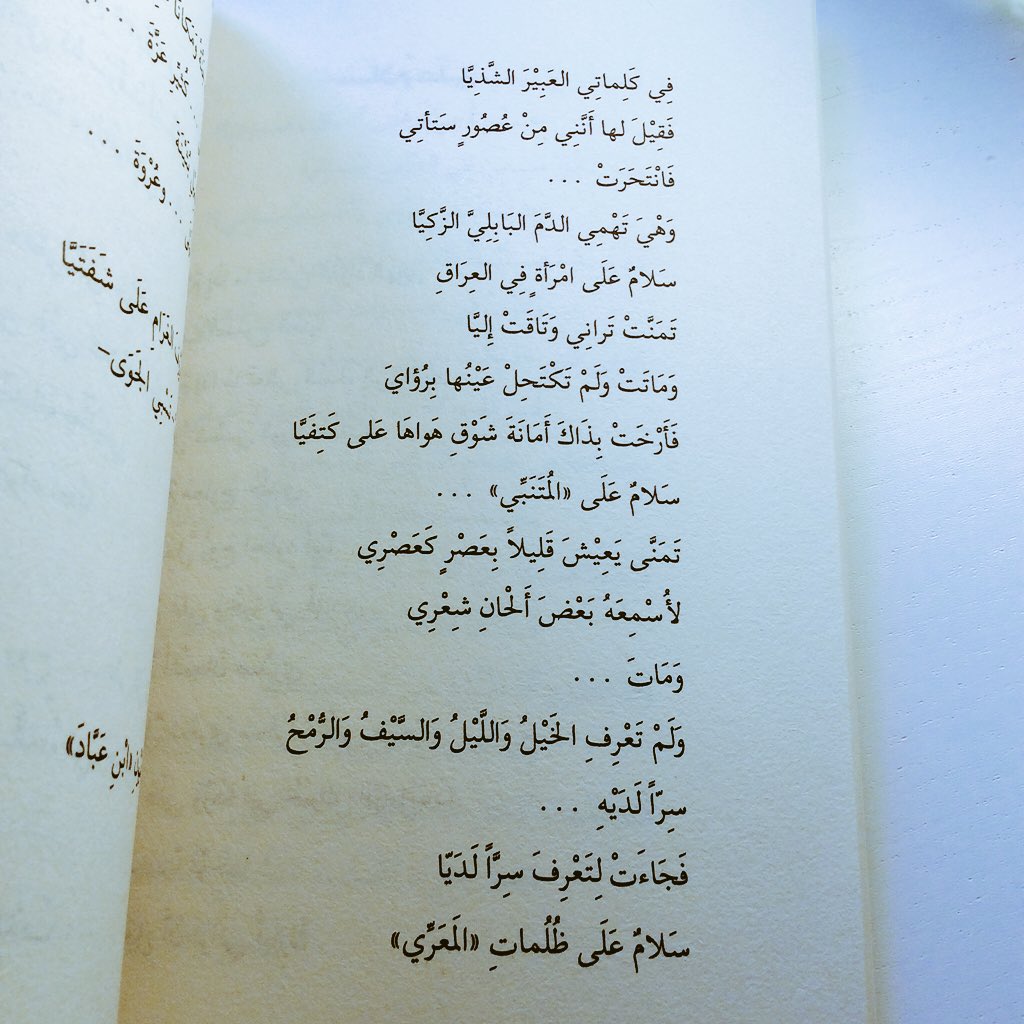 فِي كَلِماتِي العَبِيْرَ الشَّذِيَّا
فَقِيْلَ لها أَنَّنِي مِنْ عُصُورٍ سَتأتِي
فَانْتَحَرَتْ ...
وَهْيَ تَهْمِي الدَّمَ البَابِلِيَّ الزَّكِيَّا
سَلامٌ عَلَى امْرَأةٍ فِي العِرَاقِ
تَمَنَّتْ تَرانِي وَتَاقَتْ إِليَّا
وَمَاتَتْ وَلَمْ تَكْتَحِلْ عَيْنُها بِرُؤايَ
فَأَرْخَتْ بِذَاكَ أَمَانَةَ شَوْقِ هَواهَا عَلى كَتِفَيَّا
سَلامٌ عَلَى «المُتَنَبِّي» ...
تَمَنَّى يَعِيْشَ قَلِيلاً بِعَصْرٍ كَعَصْرِي
لأُسْمِعَهُ بَعْضَ أَلْحَانِ شِعْرِي
وَمَاتَ ...
وَلَمْ تَعْرِفِ الخَيْلُ وَاللَّيْلُ وَالسَّيْفُ وَالرُّمْحُ
سِرّاً لَدَيْهِ ...
فَجَاءَتْ لِتَعْرِفَ سِرَّاً لَدَيّا
سَلامٌ عَلَى ظُلُماتِ «المَعَرِّي»
كُثَيِّرِ عَزَّةَ ....
... وعُرْوَةَ ...
الغَرَامِ عَلَى شَفَتَيَّا
الجَوَى-
«ابْنِ عَبَّادَ»